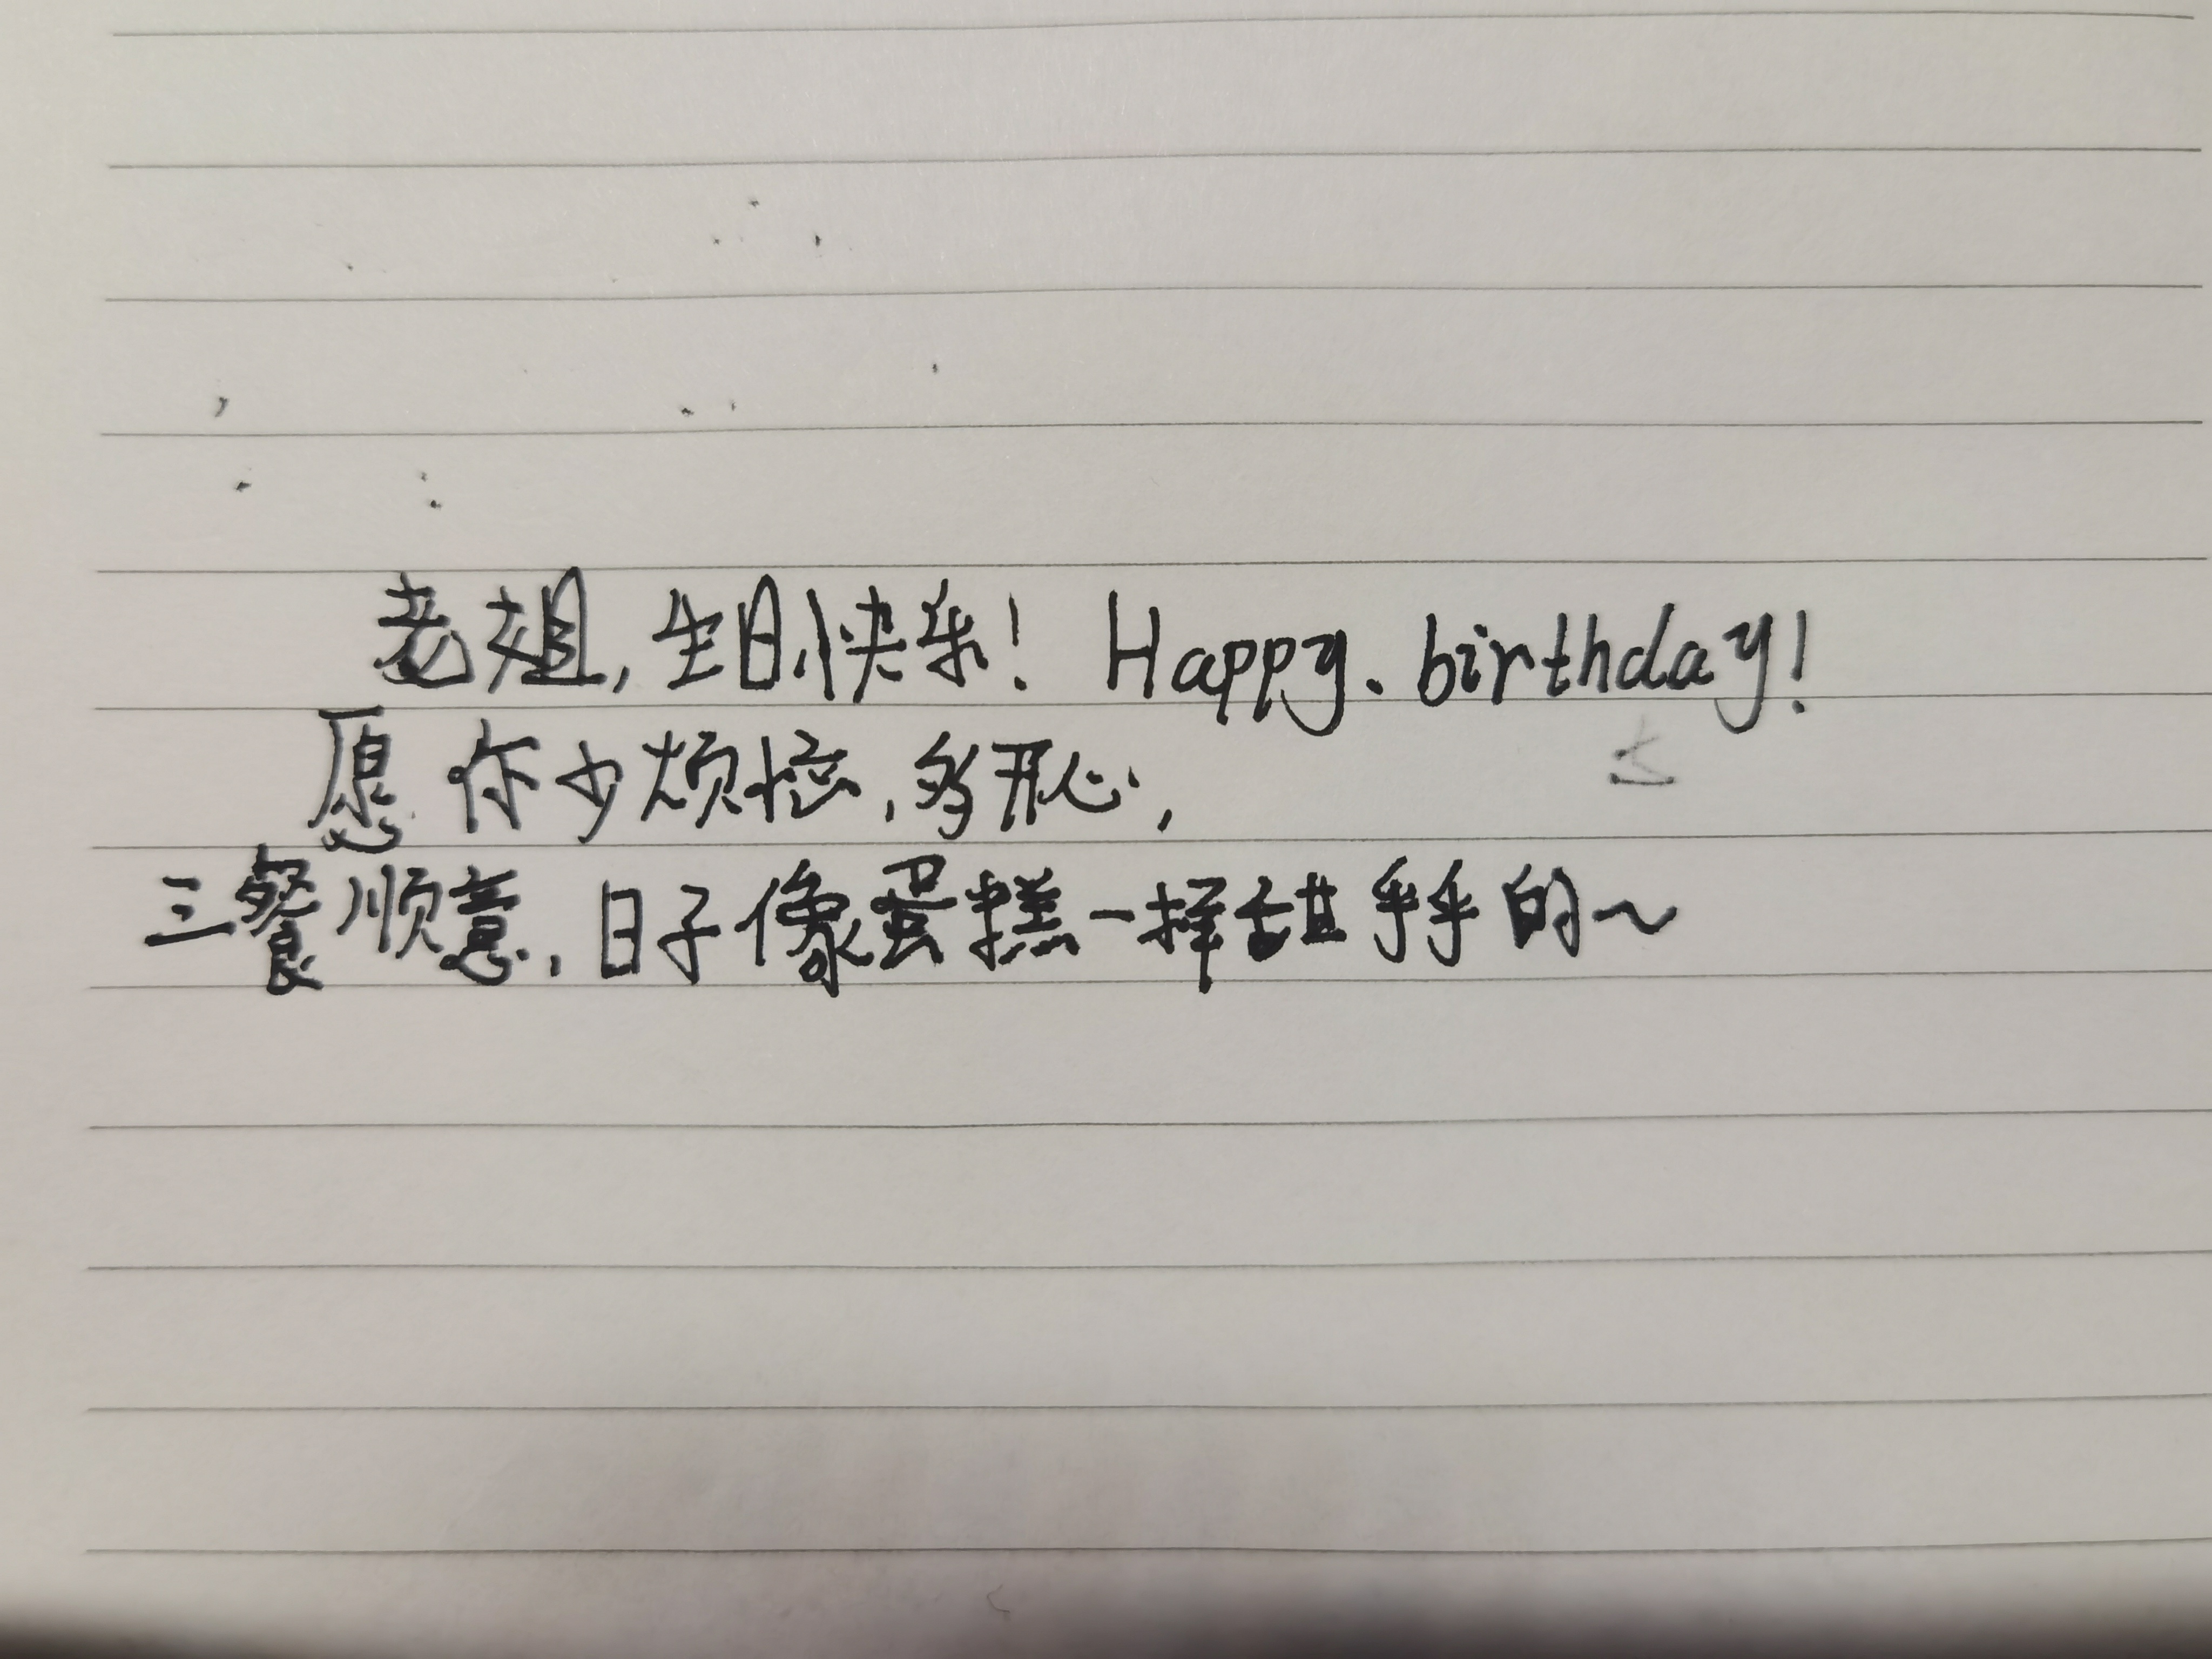 老姐,生日快乐! Happy. birthday!
愿你少烦恼,多开心,
三餐顺意,日子像蛋糕一样甜乎乎的~